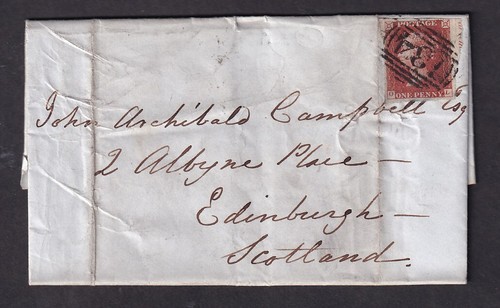 POSTAGE
ONE PENNY
John Archibald Campbell Esq
2 Albyne Place —
Edinburgh —
Scotland.